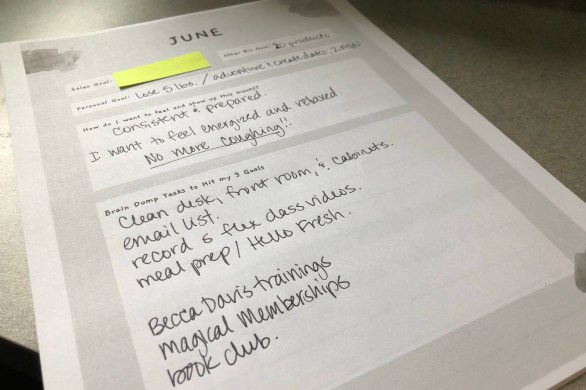 JUNE
Sales Goal:
Other Biz Goal: 20 products
Personal Goal: Lose 5 lbs. / adventure & create dates,
How do I want to feel and show up this month?
Consistent & prepared.
I want to feel energized and relaxed.
No more coughing!!
Brain Dump Tasks to Hit my 3 Goals
Clean desk, front room, & cabinets.
email list.
record 5 flex class videos.
meal prep / Hello Fresh.
Becca Davis trainings
magical memberships
book club.